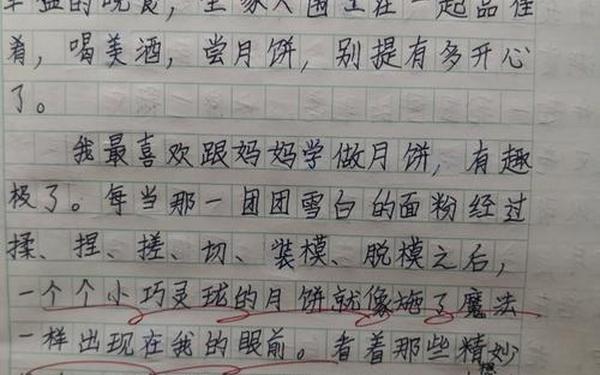 丰盛的晚食，全家人围坐在一起品佳
肴，喝美酒，尝月饼，别提有多开心
了。
我最喜欢跟妈妈学做月饼，有趣
极了。每当那一团团雪白的面粉经过
揉、捏、搓、切、装模、脱模之后，
一个个小巧灵珑的月饼就像施了魔法
一样出现在我的眼前。看着那些精妙